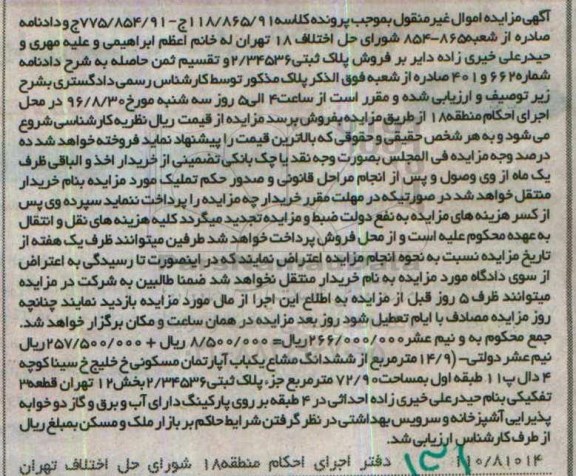 آگهی مزایده اموال غیرمنقول بموجب پرونده کلاسه ۱۱۸/۸۶۵/۹۱ج-۷۷۵/۸۵۴/۹۱ج و دادنامه
صادره از شعبه ۸۶۵-۸۵۴ شورای حل اختلاف ۱۸ تهران له خانم اعظم ابراهیمی و علیه مهری و
حیدرعلی خیری زاده دایر بر فروش پلاک ثبتی ۲/۳۴۵۳۶ و تقسیم ثمن حاصله به شرح دادنامه
شماره ۶۶۲ و ۴۰۱ صادره از شعبه فوق الذکر پلاک مذکور توسط کارشناس رسمی دادگستری بشرح
زیر توصیف و ارزیابی شده و مقرر است از ساعت ۴ الی ۵ روز سه شنبه مورخ ۹۶/۸/۳۰ در محل
اجرای احکام منطقه ۱۸ از طریق مزایده بفروش برسد مزایده از قیمت ریال نظریه کارشناسی شروع
می شود و به هر شخص حقیقی و حقوقی که بالاترین قیمت را پیشنهاد نماید فروخته خواهد شد ده
درصد وجه مزایده فی المجلس بصورت وجه نقد یا چک بانکی تضمینی از خریدار اخذ و الباقی ظرف
یک ماه از وی وصول و پس از انجام مراحل قانونی و صدور حکم تملیک مورد مزایده بنام خریدار
منتقل خواهد شد در صورتیکه در مهلت مقرر خریدار چه مزایده را پرداخت ننماید سپرده وی پس
از کسر هزینه های مزایده به نفع دولت ضبط و مزایده تجدید میگردد کلیه هزینه های نقل و انتقال
به عهده محکوم علیه است و از محل فروش پرداخت خواهد شد طرفین میتوانند ظرف یک هفته از
تاریخ مزایده نسبت به نحوه انجام مزایده اعتراض نمایند که در اینصورت تا رسیدگی به اعتراض
از سوی دادگاه مورد مزایده به نام خریدار منتقل نخواهد شد ضمنا طالبین به شرکت در مزایده
میتوانند ظرف ۵ روز قبل از مزایده به اطلاع این اجرا از مال مورد مزایده بازدید نمایند چنانچه
روز مزایده مصادف با ایام تعطیل شود روز بعد مزایده در همان ساعت و مکان برگزار خواهد شد.
جمع محکوم به و نیم عشر ۲۶۶/۰۰۰/۰۰۰ ریال= ۸/۵۰۰/۰۰۰ ریال + ۲۵۷/۵۰۰/۰۰۰ ریال
نیم عشر دولتی- (۱۴/۹ مترمربع از ششدانگ مشاع یکباب آپارتمان مسکونی خ خلیج خ سینا کوچه
۴ دال پ ۱۱ طبقه اول بمساحت ۷۲/۹۰ مترمربع جزء پلاک ثبتی ۲/۳۴۵۳۶ بخش ۱۲ تهران قطعه ۳
تفکیکی بنام حیدرعلی خیری زاده احداثی در ۴ طبقه بر روی پارکینگ دارای آب و برق و گاز دو خوابه
پذیرایی آشپزخانه و سرویس بهداشتی در نظر گرفتن شرایط حاکم بر بازار ملک و مسکن بمبلغ ریال
از طرف کارشناس ارزیابی شد.
۱۱۰/۸۱۰۱۴ دفتر اجرای احکام منطقه ۱۸ شورای حل اختلاف تهران